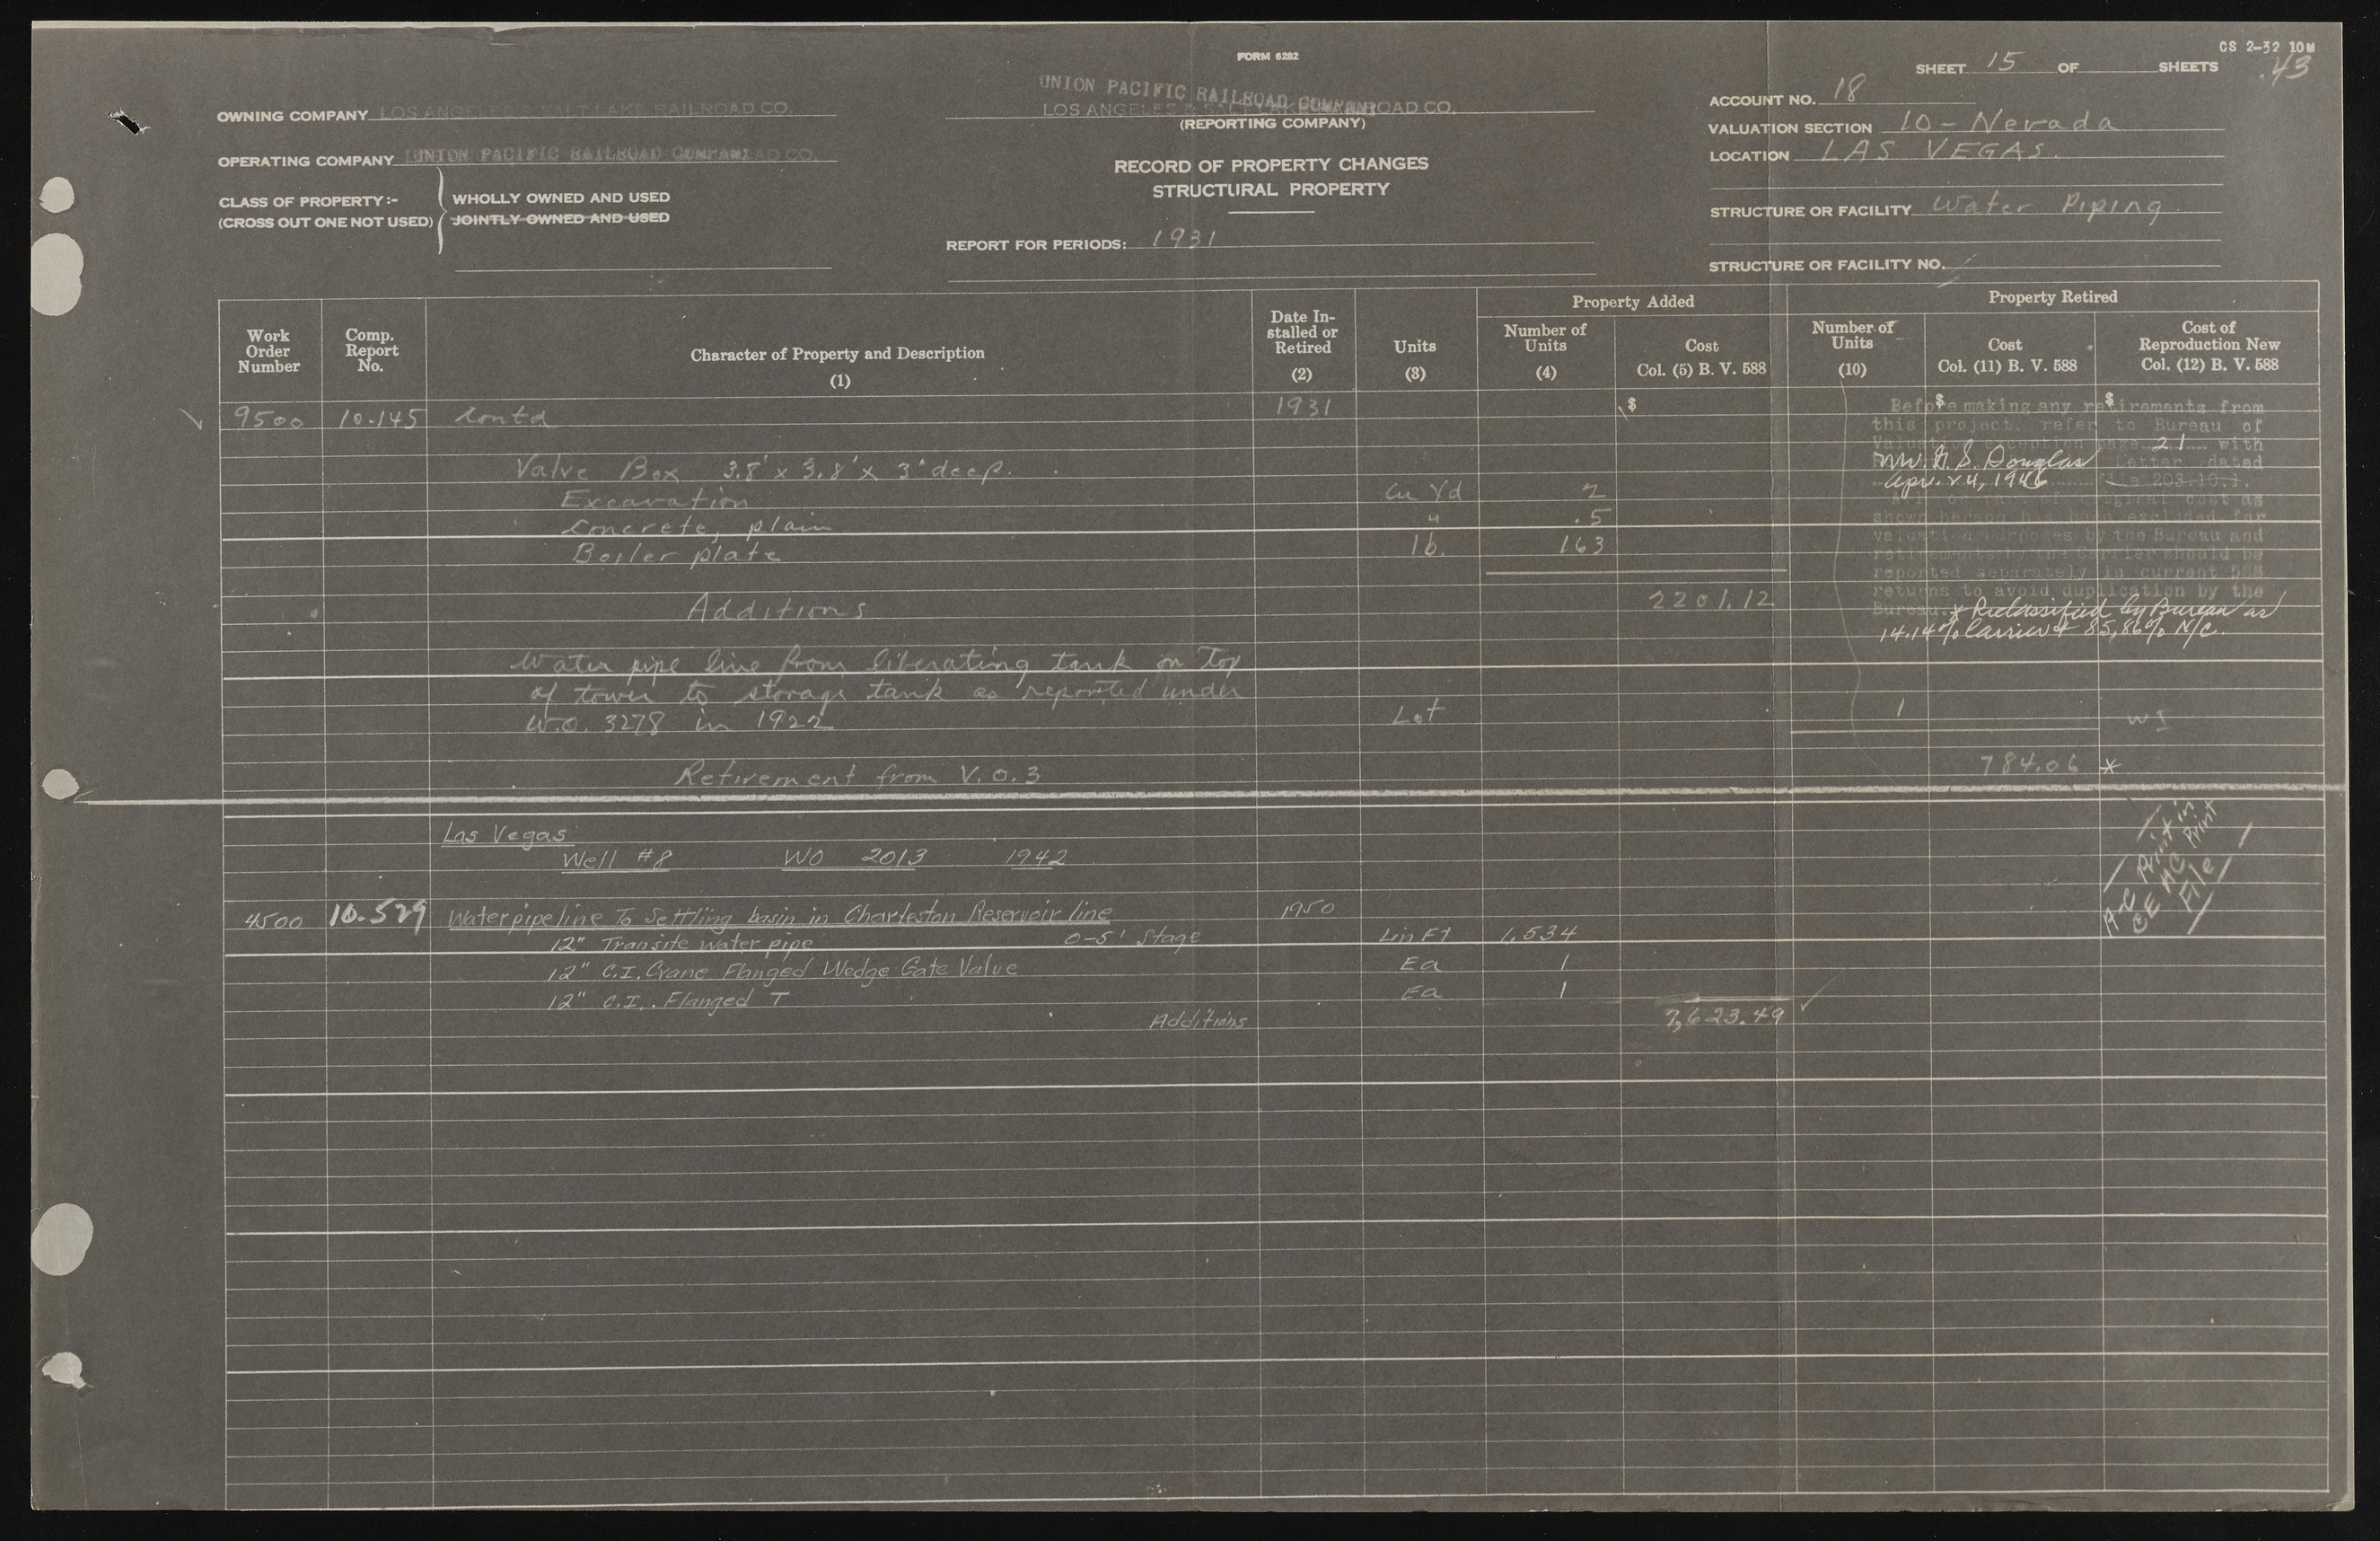 FORM 6282
CS 2-32 10M
SHEET 15 OF SHEETS
43
OWNING COMPANY LOS ANGELES & SALT LAKE RAILROAD CO.
UNION PACIFIC RAILROAD COMPANY
LOS ANGELES & SALT LAKE RAILROAD CO.
(REPORTING COMPANY)
ACCOUNT NO. 18
VALUATION SECTION 10 - Nevada
OPERATING COMPANY UNION PACIFIC RAILROAD COMPANY
LOCATION LAS VEGAS.
RECORD OF PROPERTY CHANGES
STRUCTURAL PROPERTY
CLASS OF PROPERTY :-
(CROSS OUT ONE NOT USED)
WHOLLY OWNED AND USED
JOINTLY OWNED AND USED
STRUCTURE OR FACILITY Water Piping
REPORT FOR PERIODS: 1931
STRUCTURE OR FACILITY NO.
Work Order Number
Comp. Report No.
Character of Property and Description
(1)
Date Installed or Retired
(2)
Units
(3)
Property Added
Number of Units
(4)
Cost
Col. (5) B. V. 588
Property Retired
Number of Units
(10)
Cost
Col. (11) B. V. 588
Cost of Reproduction New
Col. (12) B. V. 588
9500 10-145 Contd 1931 $ $ $
Before making any retirements from
this project, refer to Bureau of
Valuation exception page 21 with
Mr. G. S. Douglas letter dated
Apr. 24, 1946 File 203.10.1.
original cost as
shown hereon has been excluded for
valuation purposes by the Bureau and
retirements by the Carrier should be
reported separately in current 588
returns to avoid duplication by the
Bureau. * Reclassified by Bureau as
14.14% Carrier & 85.86% N/C.
Valve Box 3.8' x 3.8' x 3' deep.
Excavation Cu Yd 2
Concrete, plain " .5
Boiler plate lb. 163
Additions 2201.12
Water pipe line from liberating tank on top
of tower to storage tank as reported under
W.O. 3278 in 1922 Lot 1
Retirement from V.O.3 784.06 *
Las Vegas
Well #8 WO 2013 1942
A-C Print in
CE AC Print
File
4500 10-529 Water pipe line To Settling basin in Charleston Reservoir line 1950
12" Transite water pipe 0-5' Stage Lin Ft 1,534
12" C.I. Crane Flanged Wedge Gate Valve Ea 1
12" C.I. Flanged T Ea 1
Additions 7,623.49